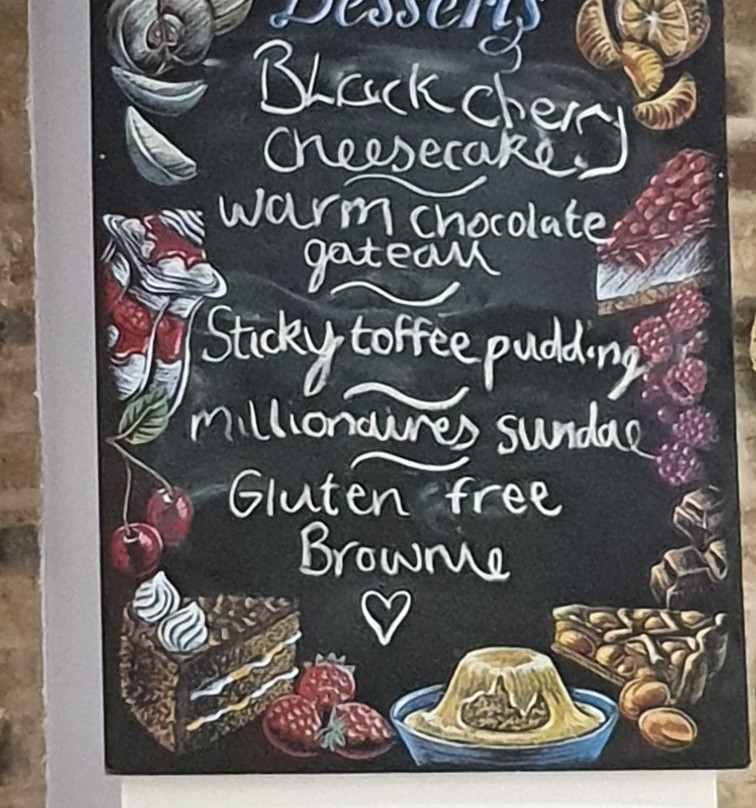 Desserts
Black cherry
cheesecake.
warm chocolate
gateau
Sticky toffee pudding
millionaires sundae
Gluten free
Brownie